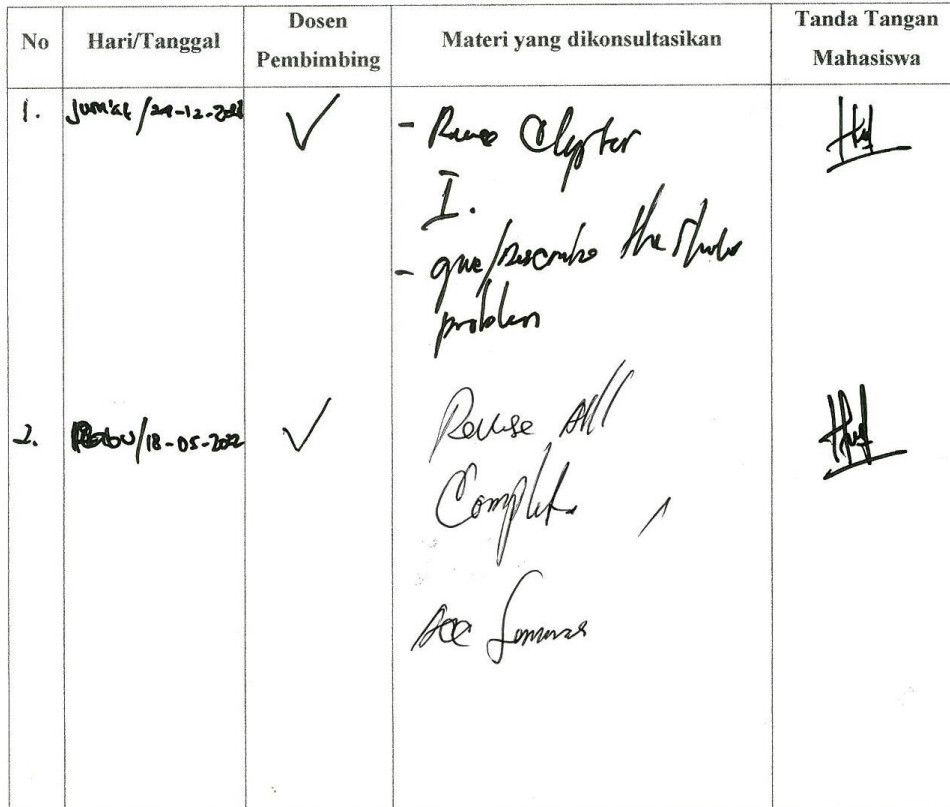 No Hari/Tanggal Dosen Pembimbing Materi yang dikonsultasikan Tanda Tangan Mahasiswa
1. Jum'at / 24-12-2021
- Revise Chapter
I.
- give/Describe the
problem
2. Rabu/18-05-2022
Revise All
Complete
Acc Seminar